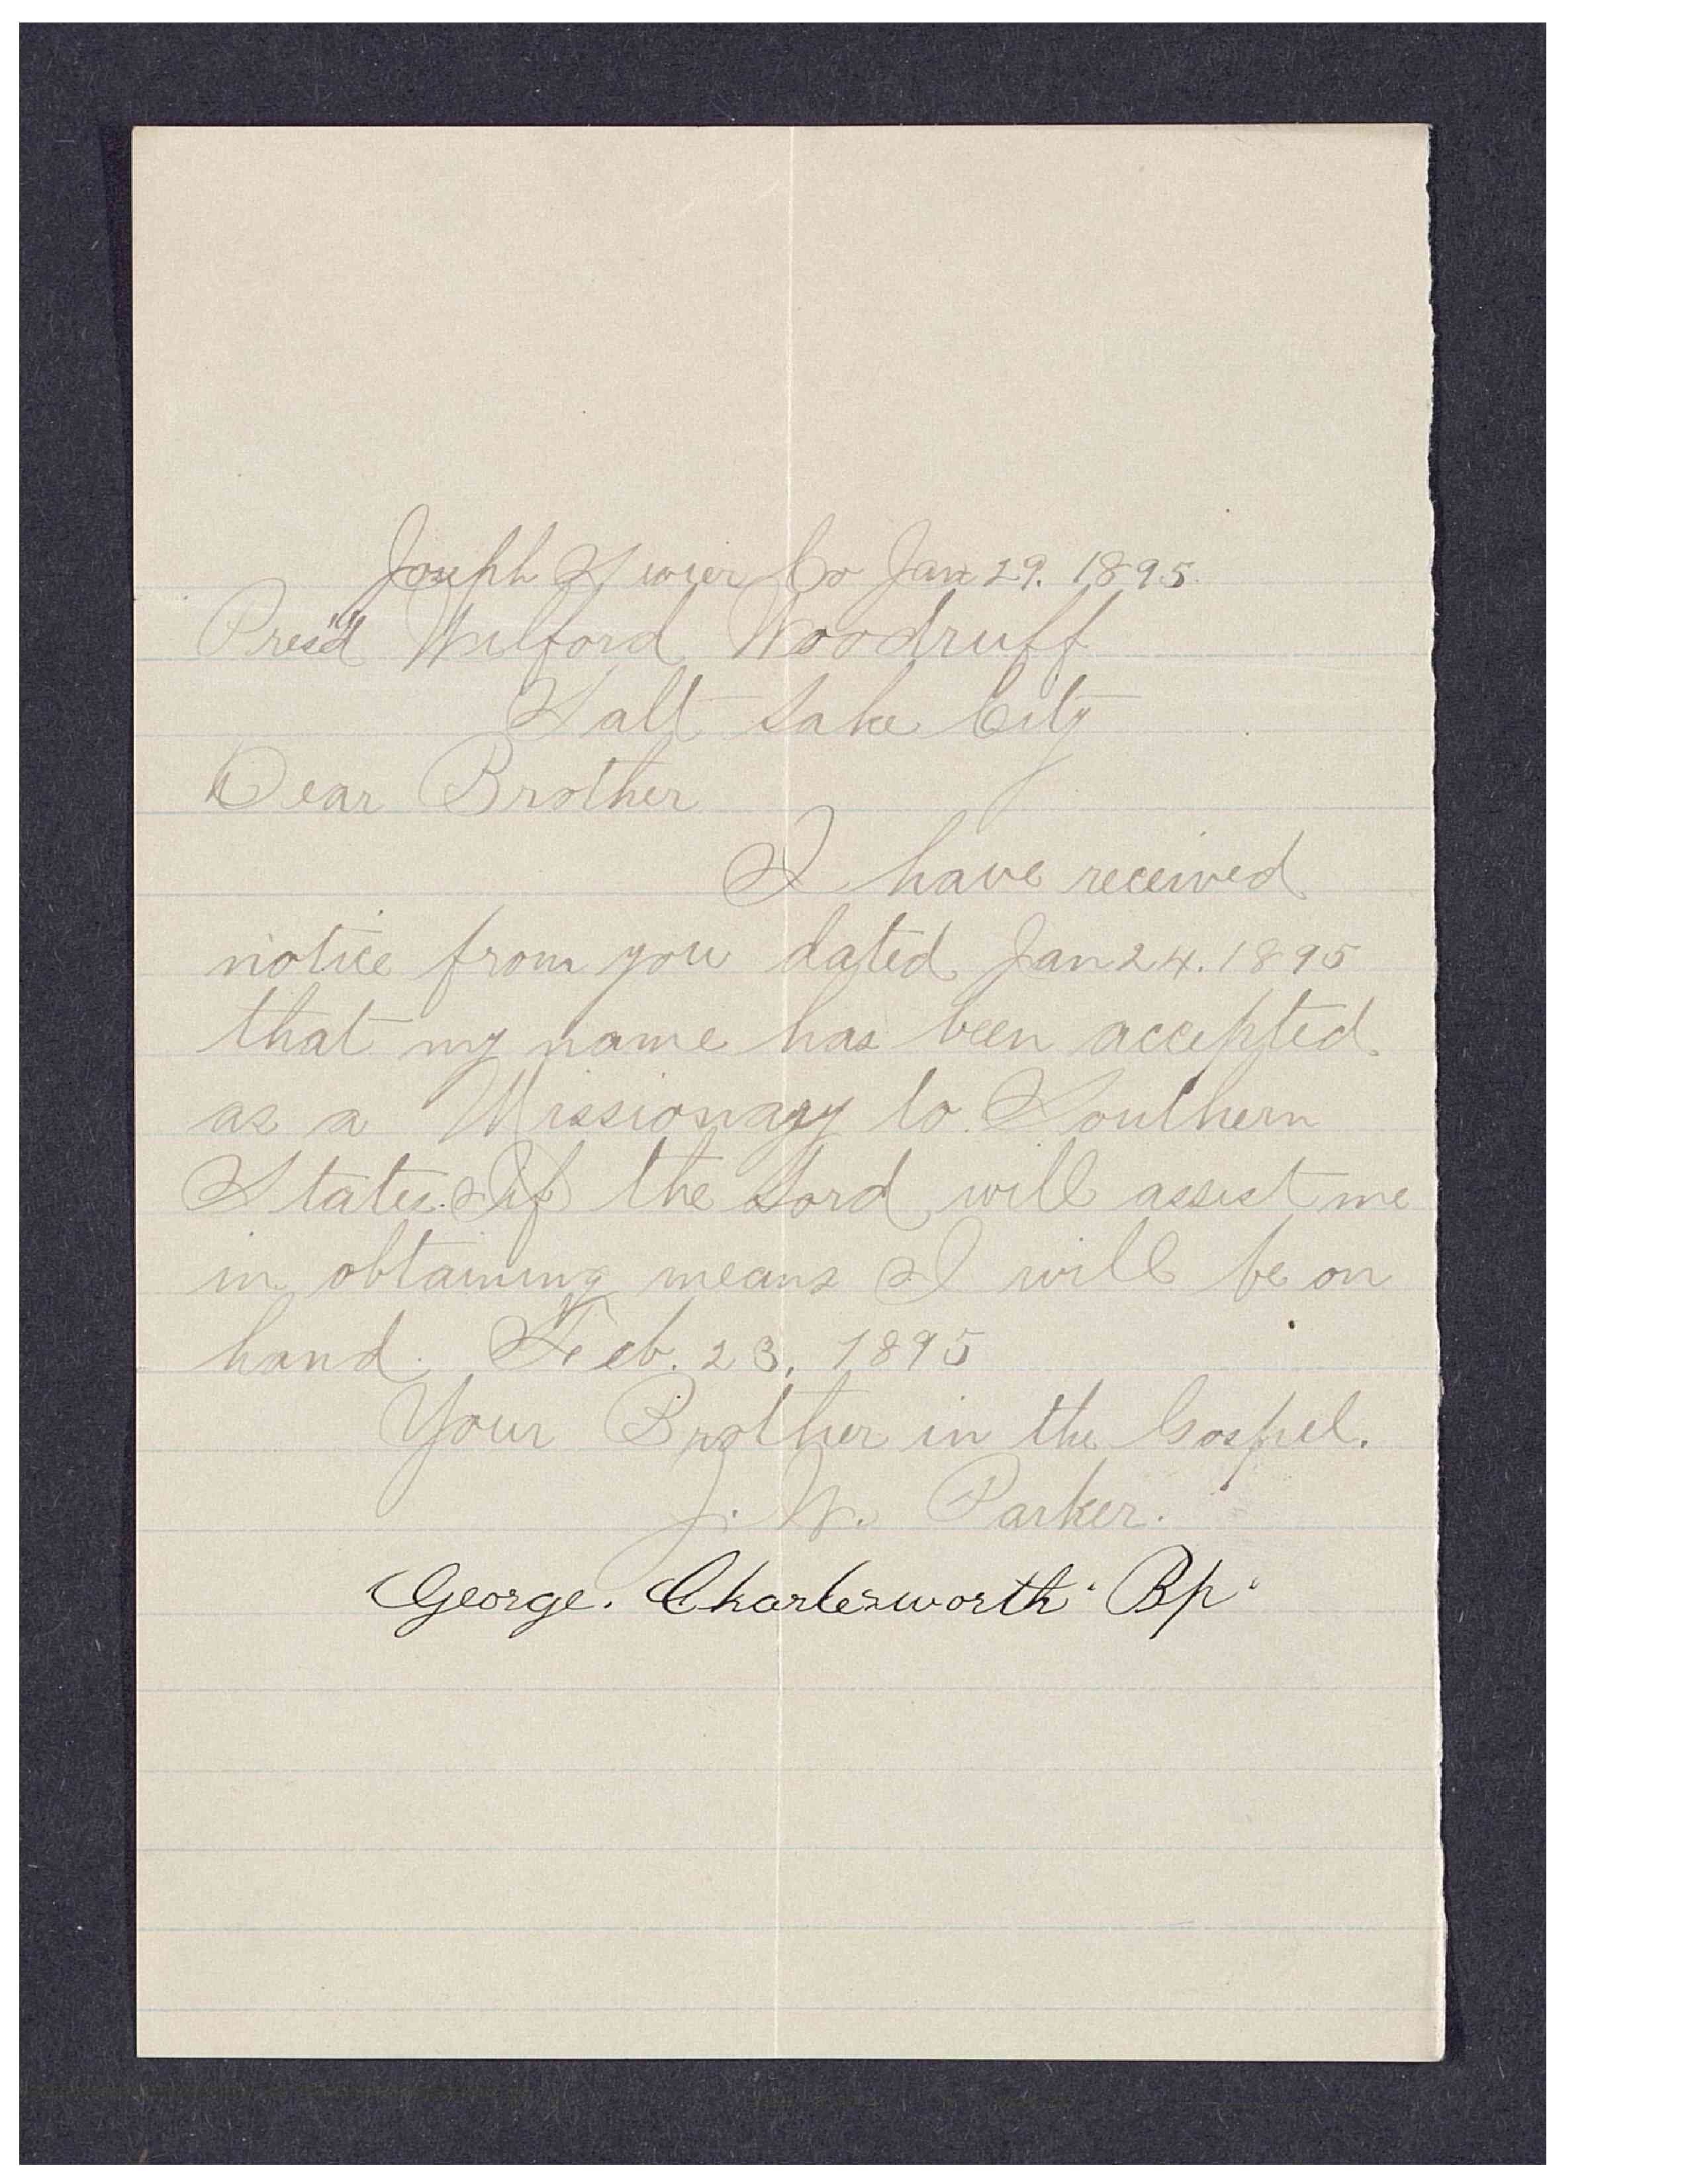 Joseph Sevier Co Jan 29. 1895.
Pres'd Wilford Woodruff
Salt Lake City
Dear Brother
I have received
notice from you dated Jan 24. 1895
that my name has been accepted
as a Missionary to Southern
States. If the Lord will assist me
in obtaining means I will be on
hand. Feb. 23, 1895
Your Brother in the Gospel.
J. W. Parker.
George. Charlesworth "Bp"